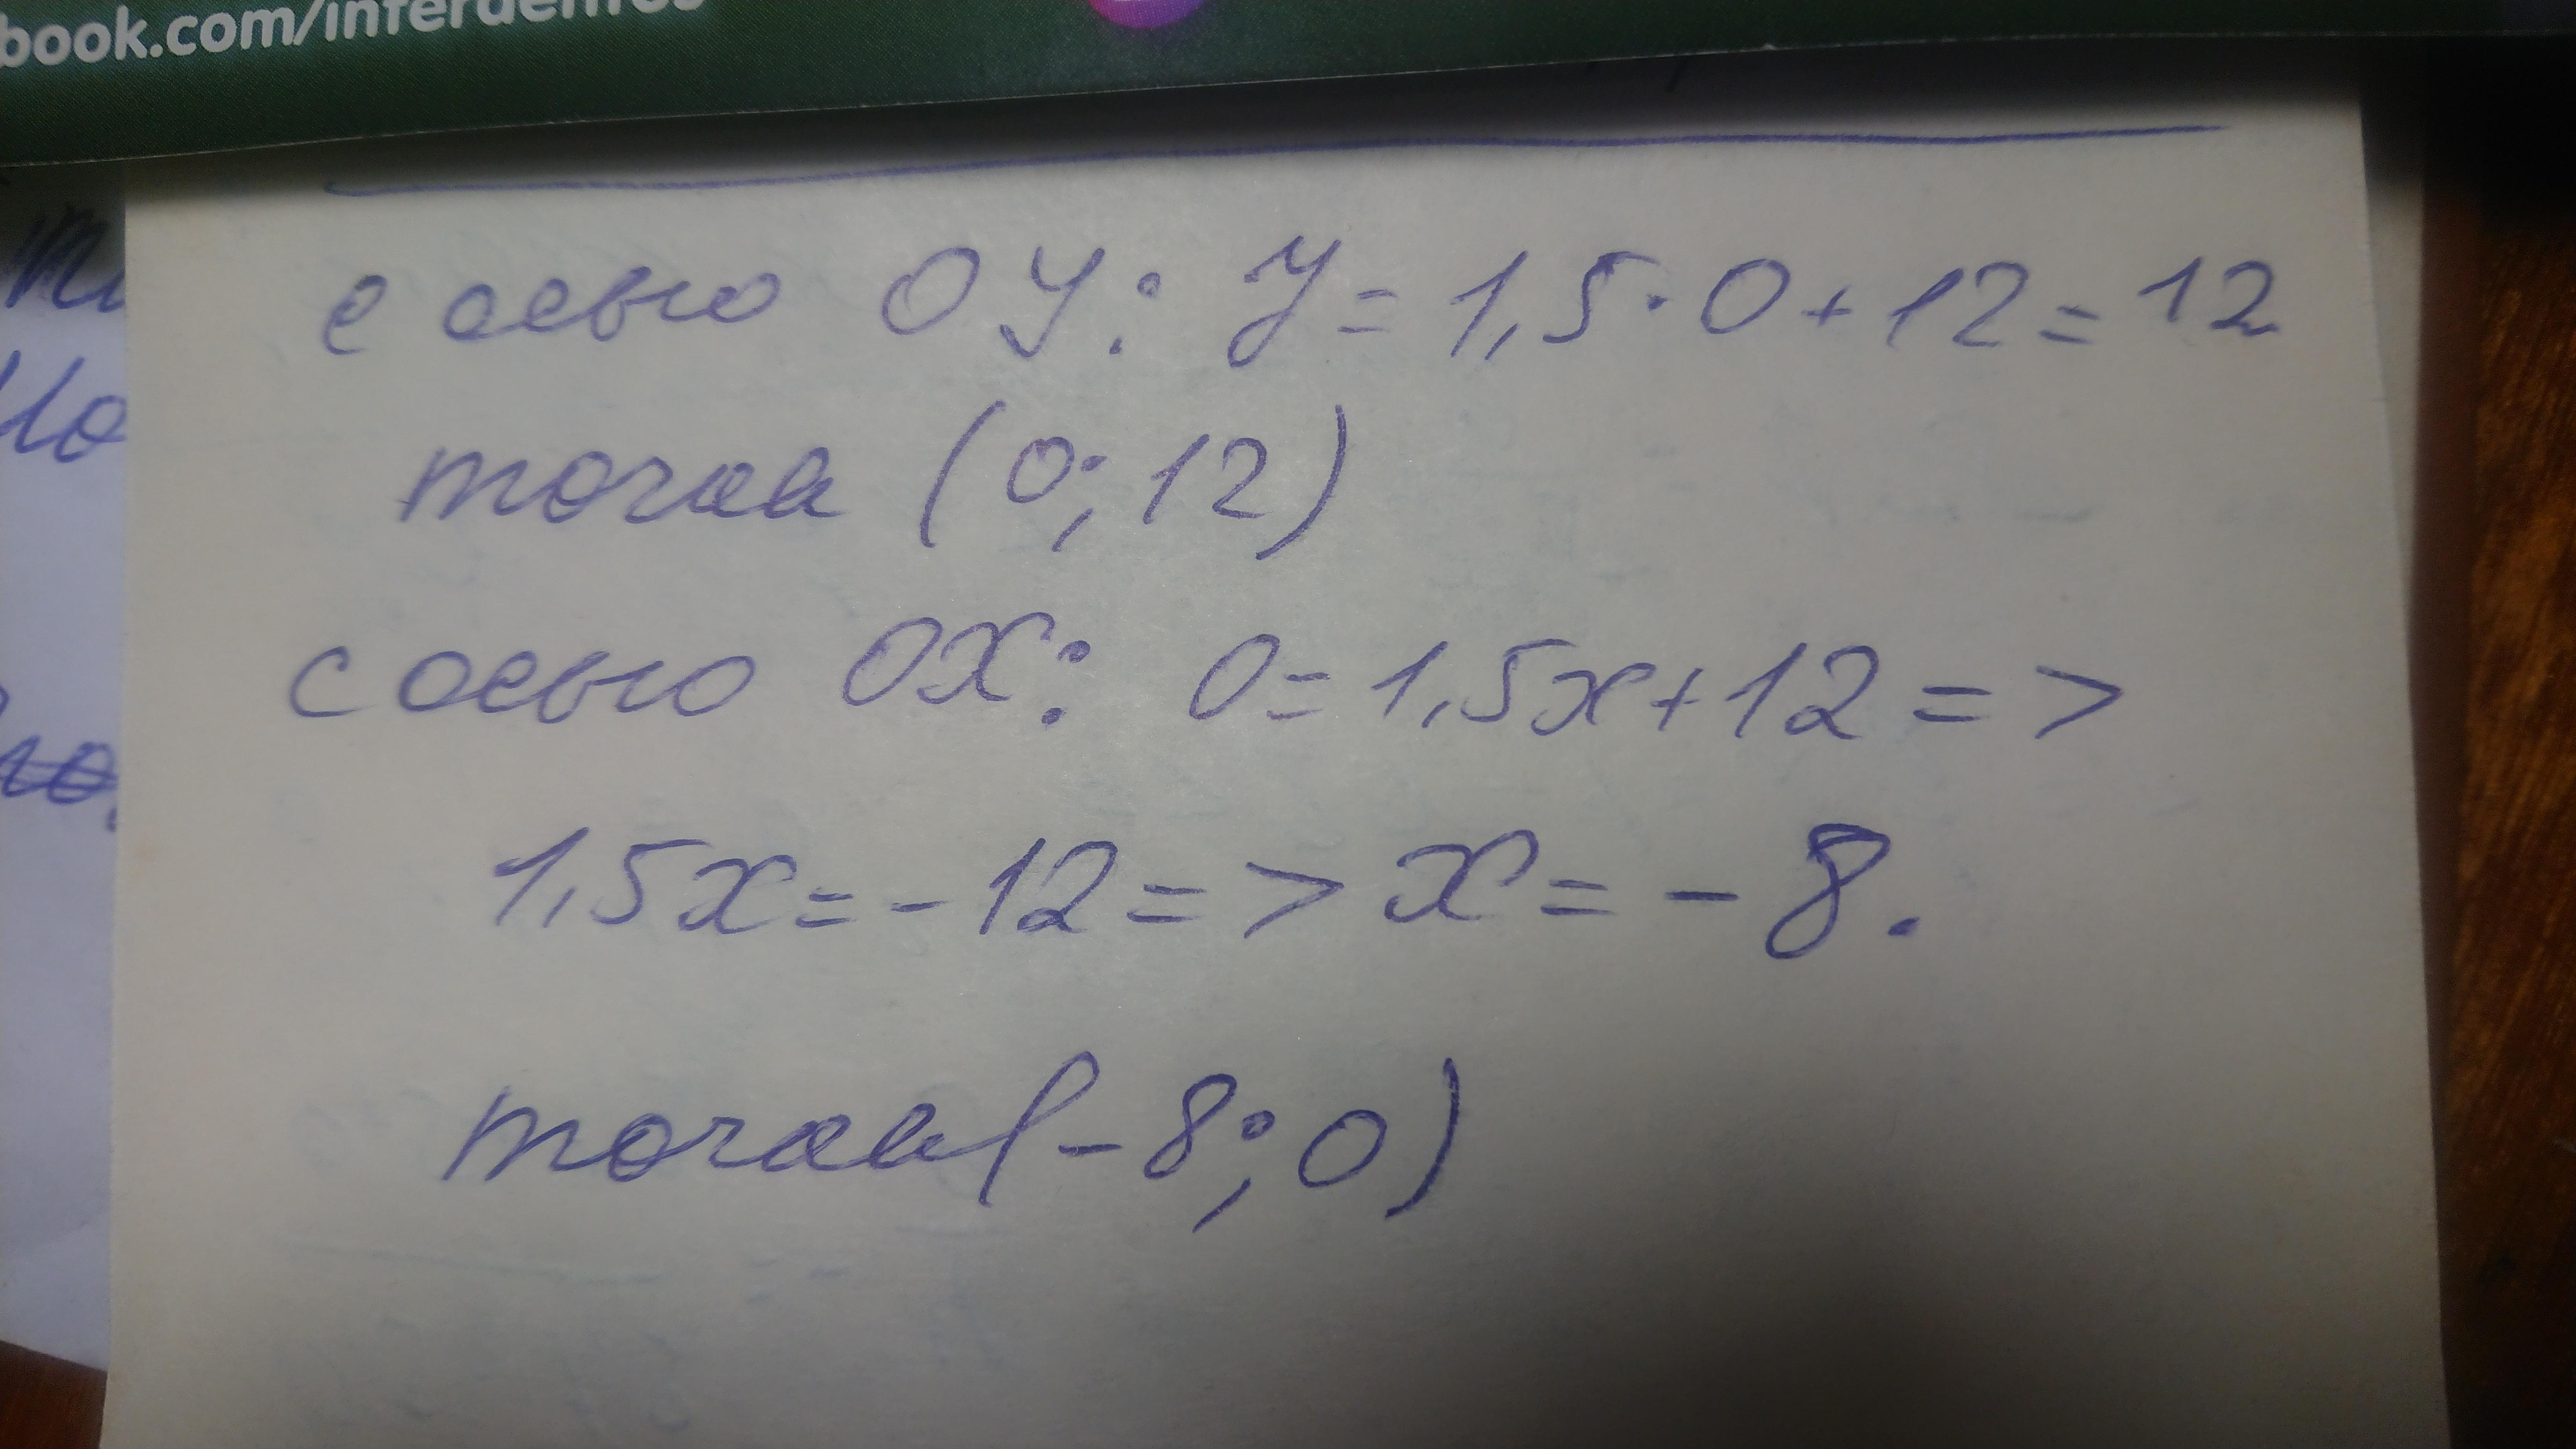 book.com/interdentos
с осью OY: y = 1,5 · 0 + 12 = 12
точка (0; 12)
с осью OX: 0 = 1,5x + 12 =>
1,5x = - 12 => x = - 8.
точка (- 8; 0)